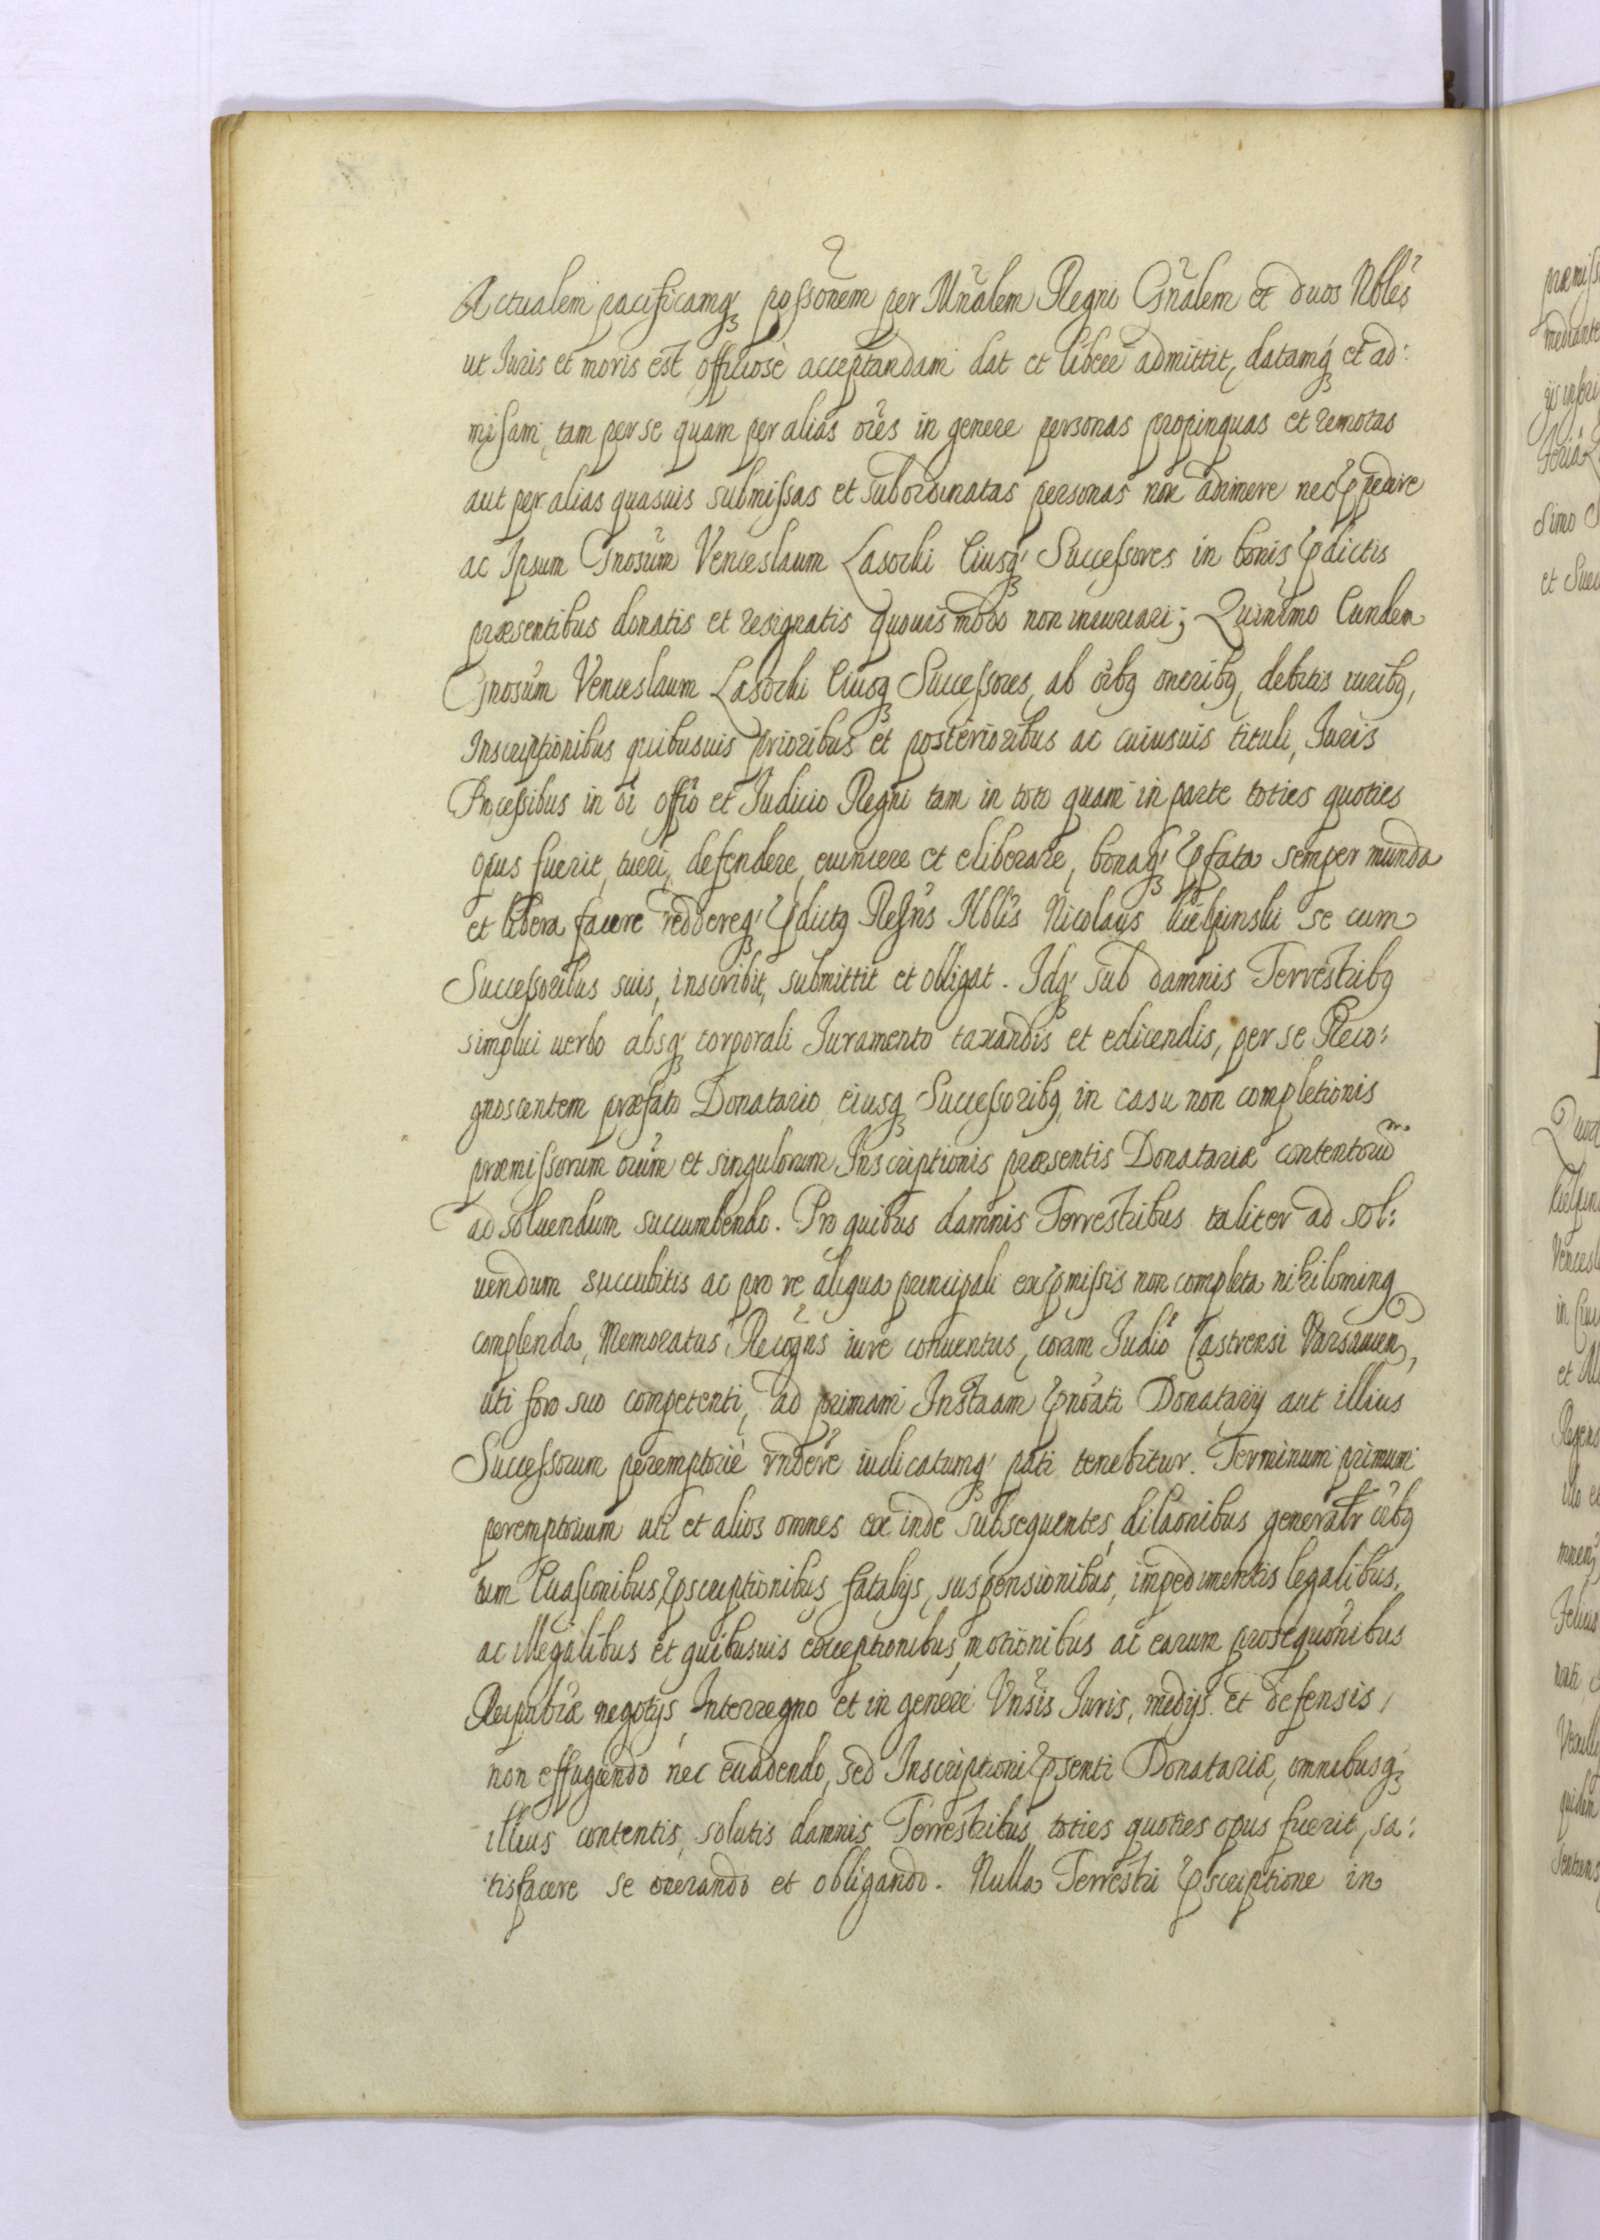 Actualem pacificamq; possõnem per Mñalem Regni Gñalem et duos Nbles
ut Iuris et moris est officiosè acceptandam dat et liberè admittit, datamq; et ad:
missam, tam per se quam per alias oẽs in genere personas propinquas et remotas
aut per alias quasuis submissas et subordinatas personas non adimere nec
ac Ipsum Gnosum Venceslaum Lasocki Eiusq; Successores in bonis pdictis
præsentibus donatis et resignatis quouis modo non iniuriari; Quinimo Eundem
Gnosum Venceslaum Lasocki Eiusq; Successores, ab oibq oneribq, debitis iuribq,
Inscriptionibus quibusuis prioribus et posterioribus ac cuiusuis tituli, Iuris
Processibus in oi offio et Iudicio Regni tam in toto quam in parte toties quoties
opus fuerit, tueri, defendere, euincere et eliberare, bonaq; pfata semper munda
et libera facere reddereq; pdictq Regñs Nblis Nicolaus Kiełpinski se cum
Successoribus suis, inscribit, submittit et obligat. Idq; sub damnis Terrestribq
simplici uerbo absq; corporali Iuramento taxandis et edicendis, per se Reco:
gnoscentem præfato Donatario eiusq; Successoribq in casu non completionis
præmissorum oium et singulorum Inscriptionis præsentis Donatariæ contentorum
ad soluendum succumbendo. Pro quibus damnis Terrestribus taliter ad sol:
uendum succubitis ac pro re aliqua principali ex pmissis non completa nihilominq
complenda, Memoratus Recogñs iure conuentus, coram Iudio Castrensi Varsauien,
uti foro suo competenti, ad primam Instãam pnoati Donatarij aut illius
Successorum peremptoriè rndere iudicatumq; pati tenebitur. Terminum primum
peremptorium uti et alios omnes ex inde subsequentes, dilaonibus generalr oibq
tum Euasionibus, pscriptionibus fatalijs, suspensionibus, impedimentis legalibus,
ac illegalibus et quibusuis exceptionibus, motionibus ac earum prosequõnibus
Reipublæ negotijs Interregno et in genere Vnsis Iuris, medijs et defensis,
non effugiendo nec euadendo, sed Inscriptioni psenti Donatariæ, omnibusq;
illius contentis, solutis damnis Terrestribus toties quoties opus fuerit, sa:
tisfacere se onerando et obligando. Nulla Terrestri pscriptione in